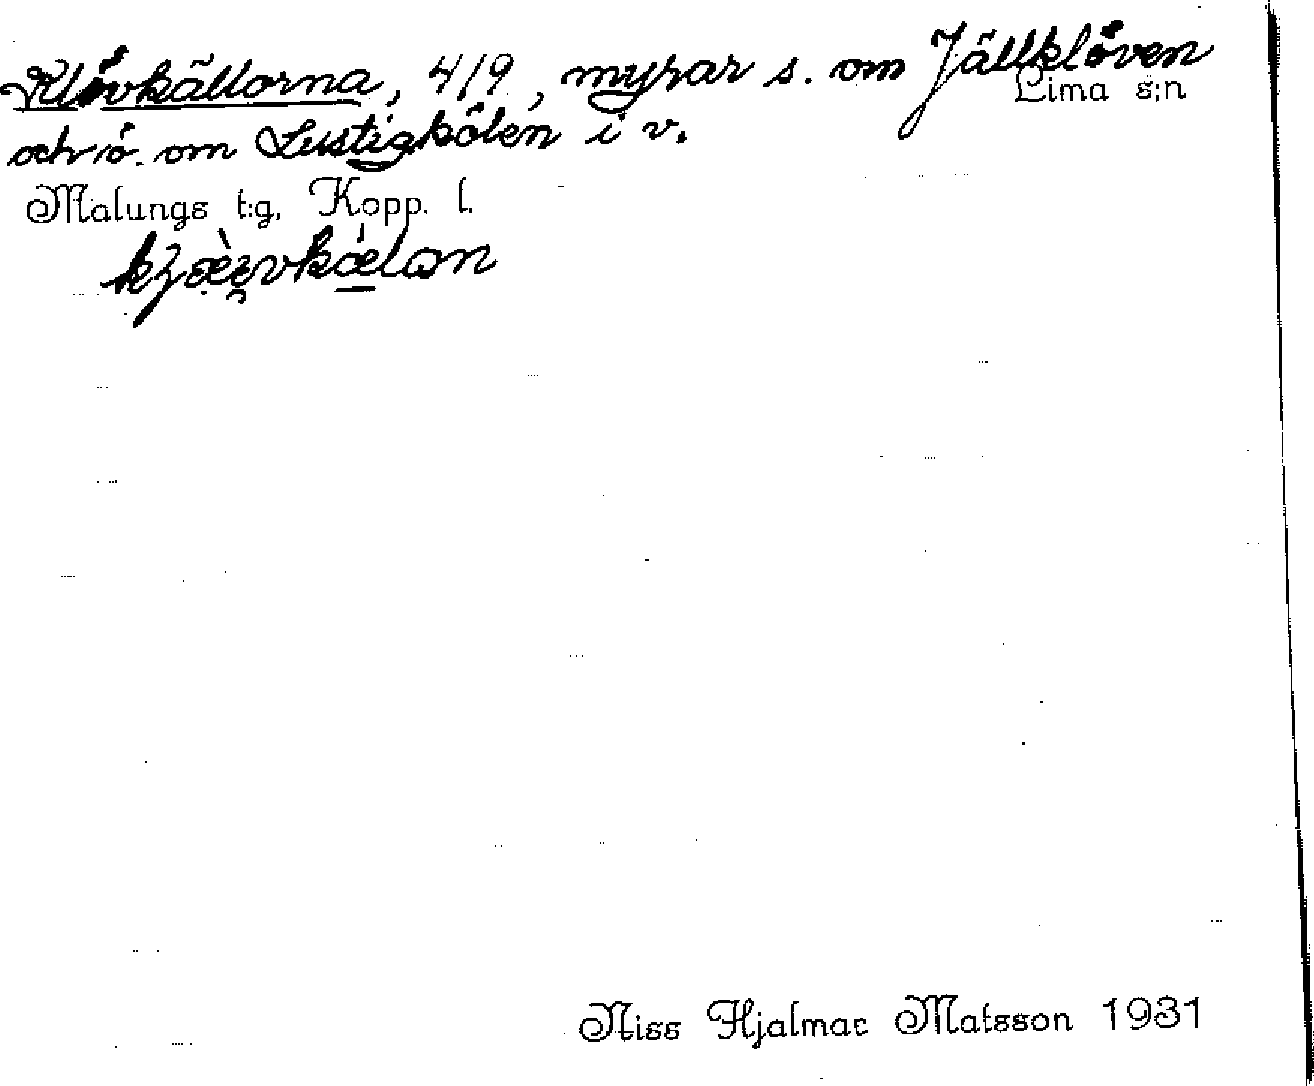 Klövkällorna, 4/9, myrar s. om Jällklöven
Lima s:n
och ö. om Lustigkölen i v.
Malungs t:g, Kopp. l.
Niss Hjalmar Matsson 1931